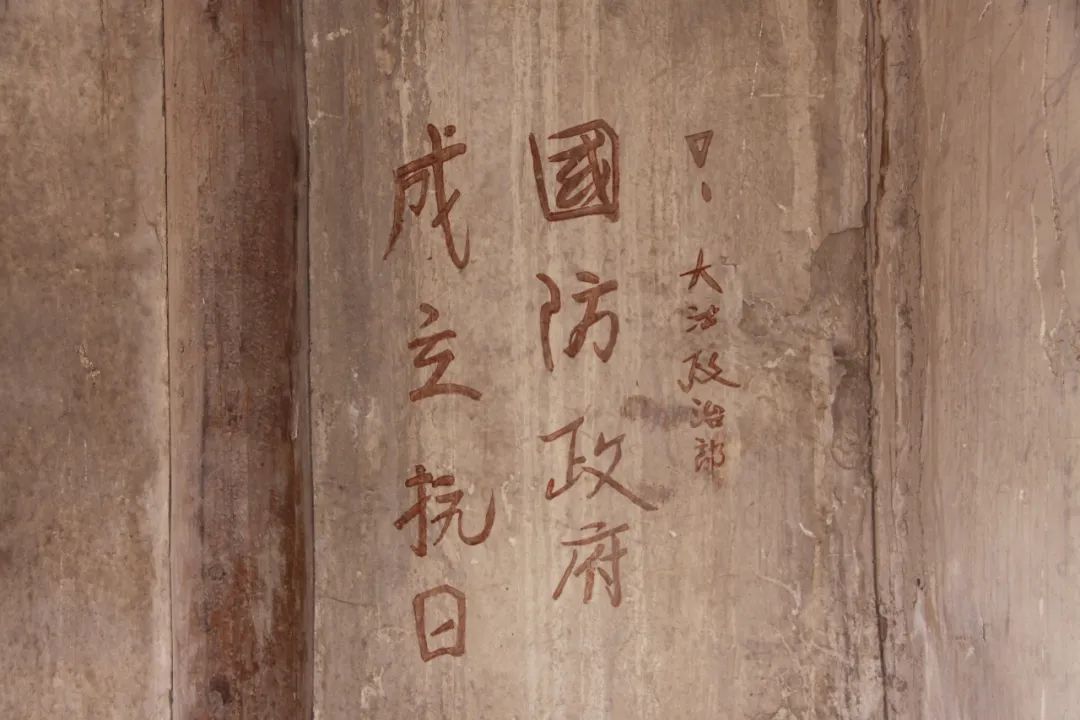 成立抗日
國防政府
！大沽政治部